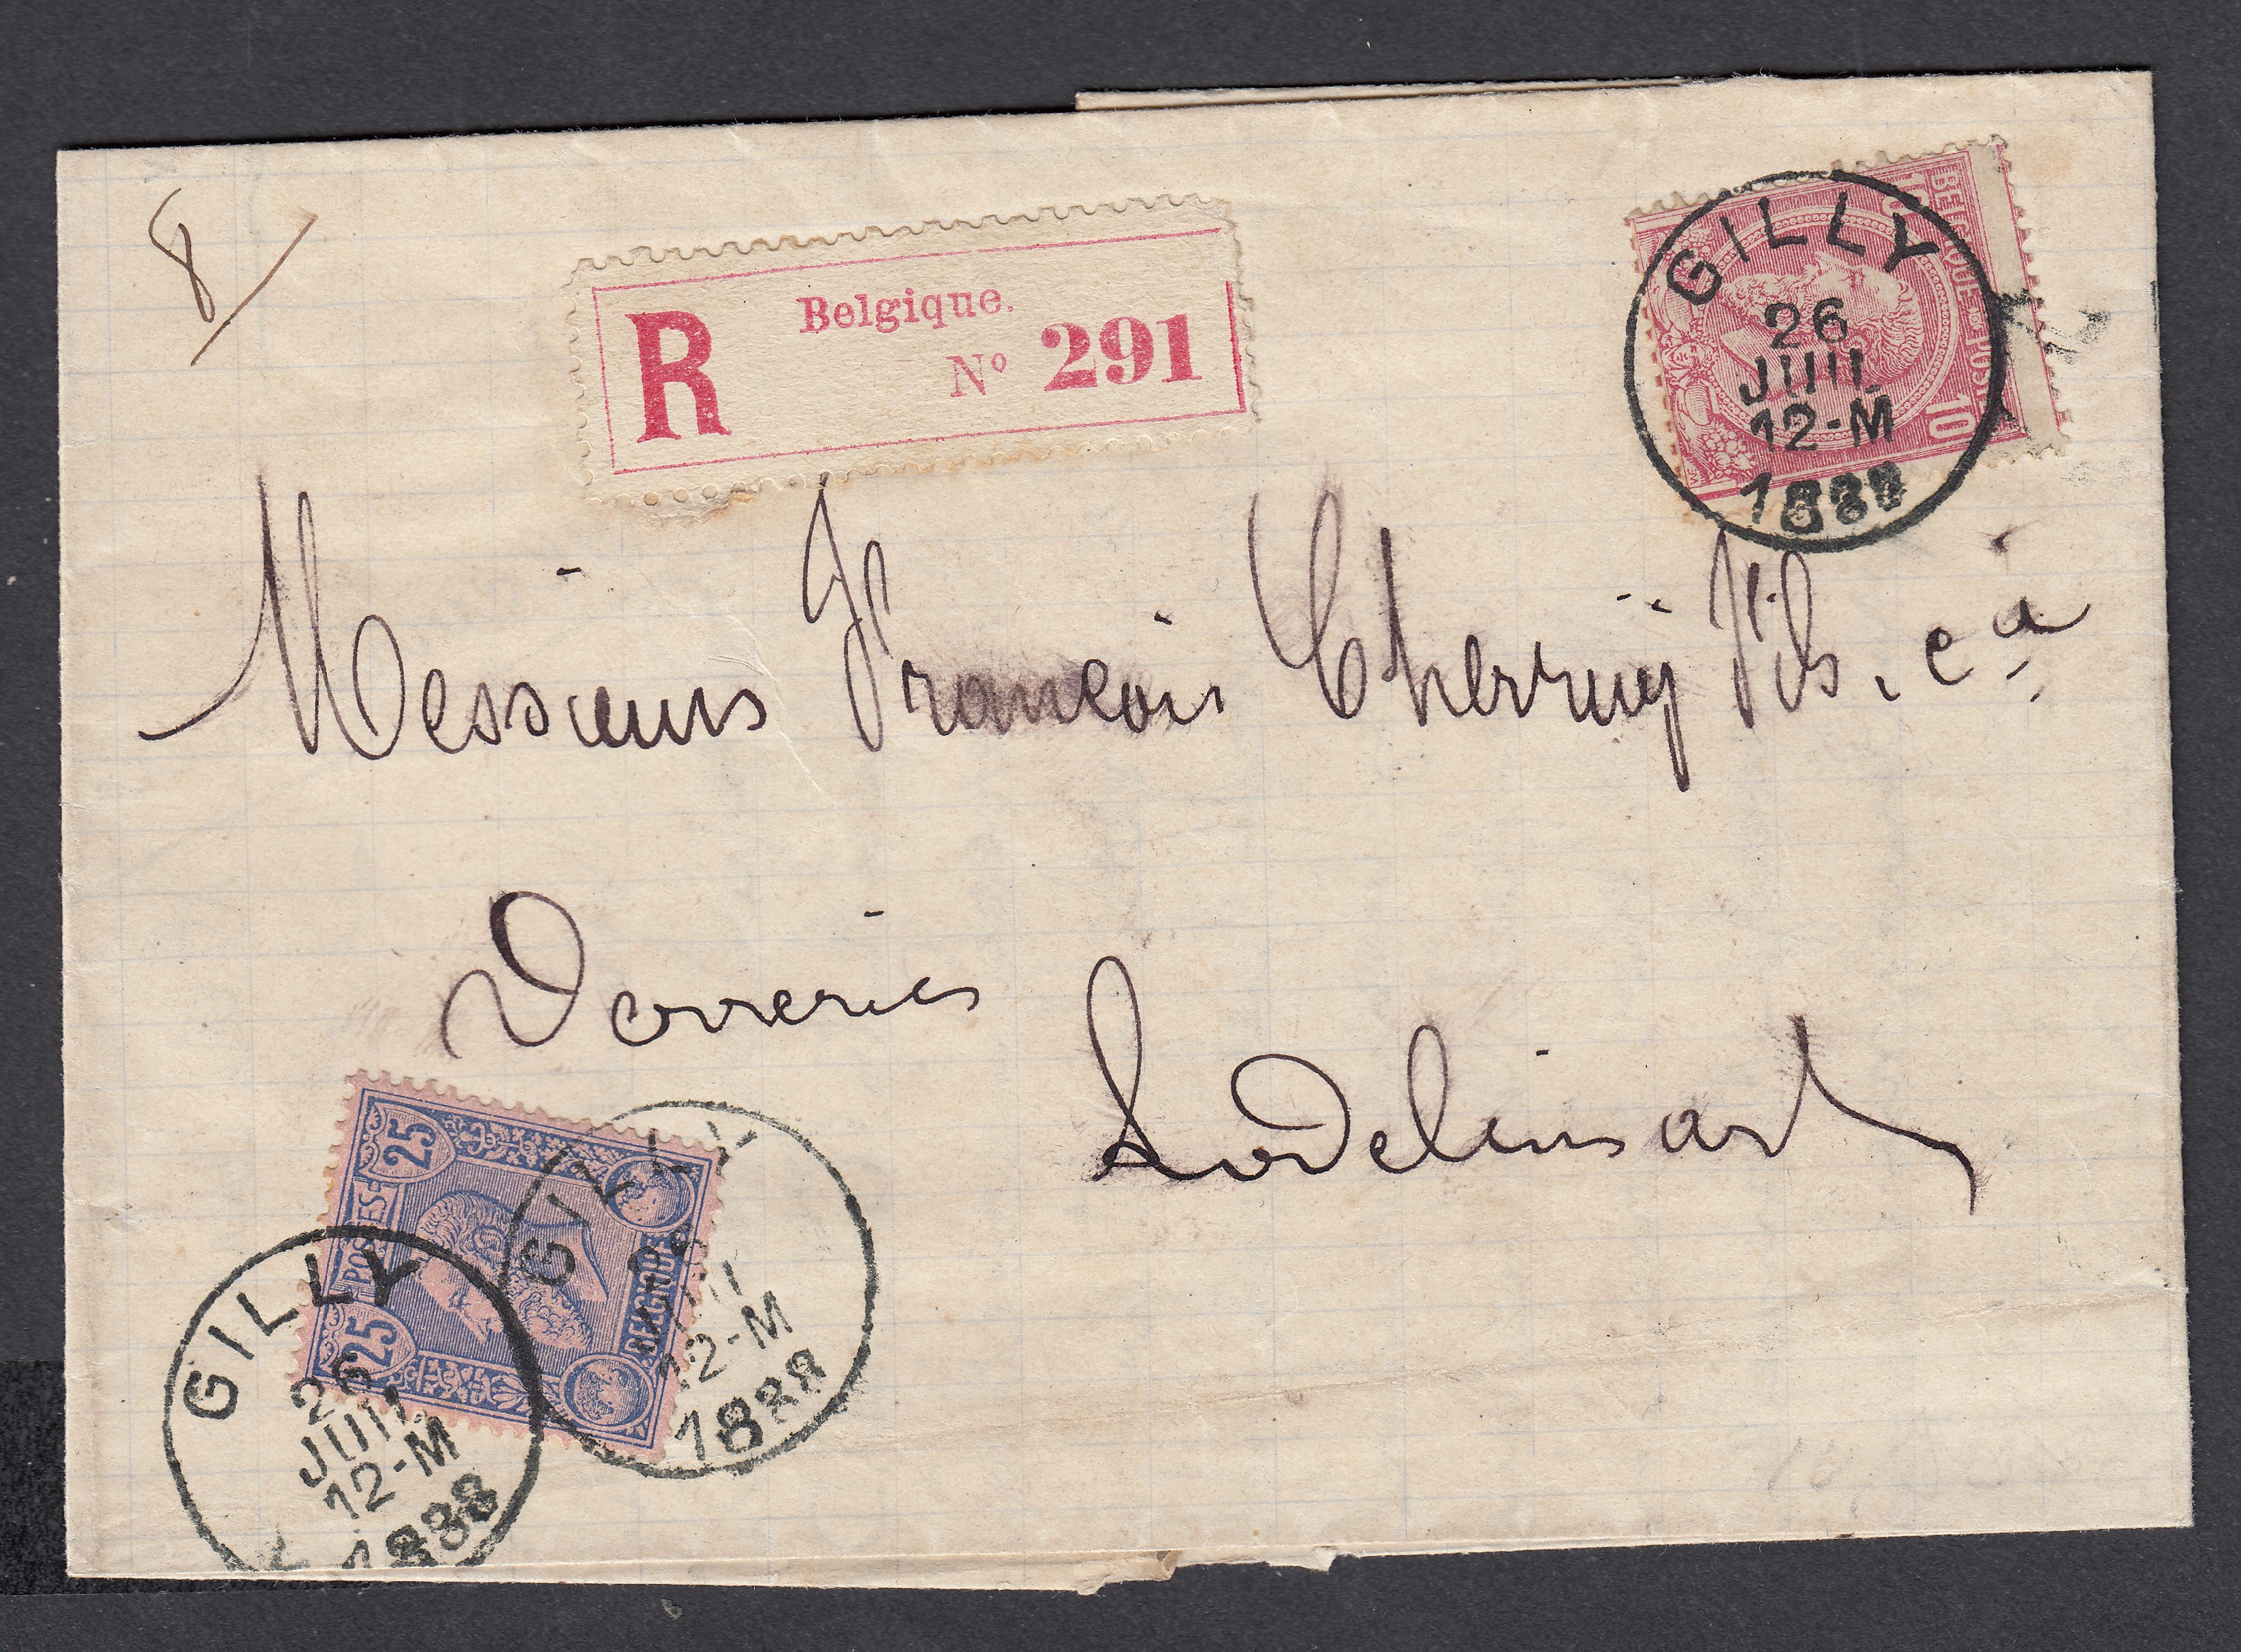 8
R Belgique.
Nº 291
GILLY
26
JUIL
12-M
1888
BELGIQUE POSTE
10 10
Messieurs François Therruÿ Fils. cᵃ
Verreries
Lodelinsart
25 POSTES 25
BELGIQUE
GILLY
26
JUIL
12-M
1888
GILLY
26
JUIL
12-M
1888